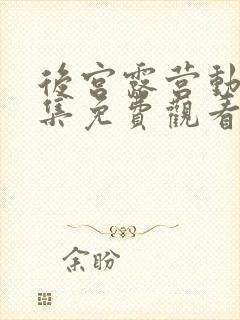 後宮露营動
集免費觀看
余盼